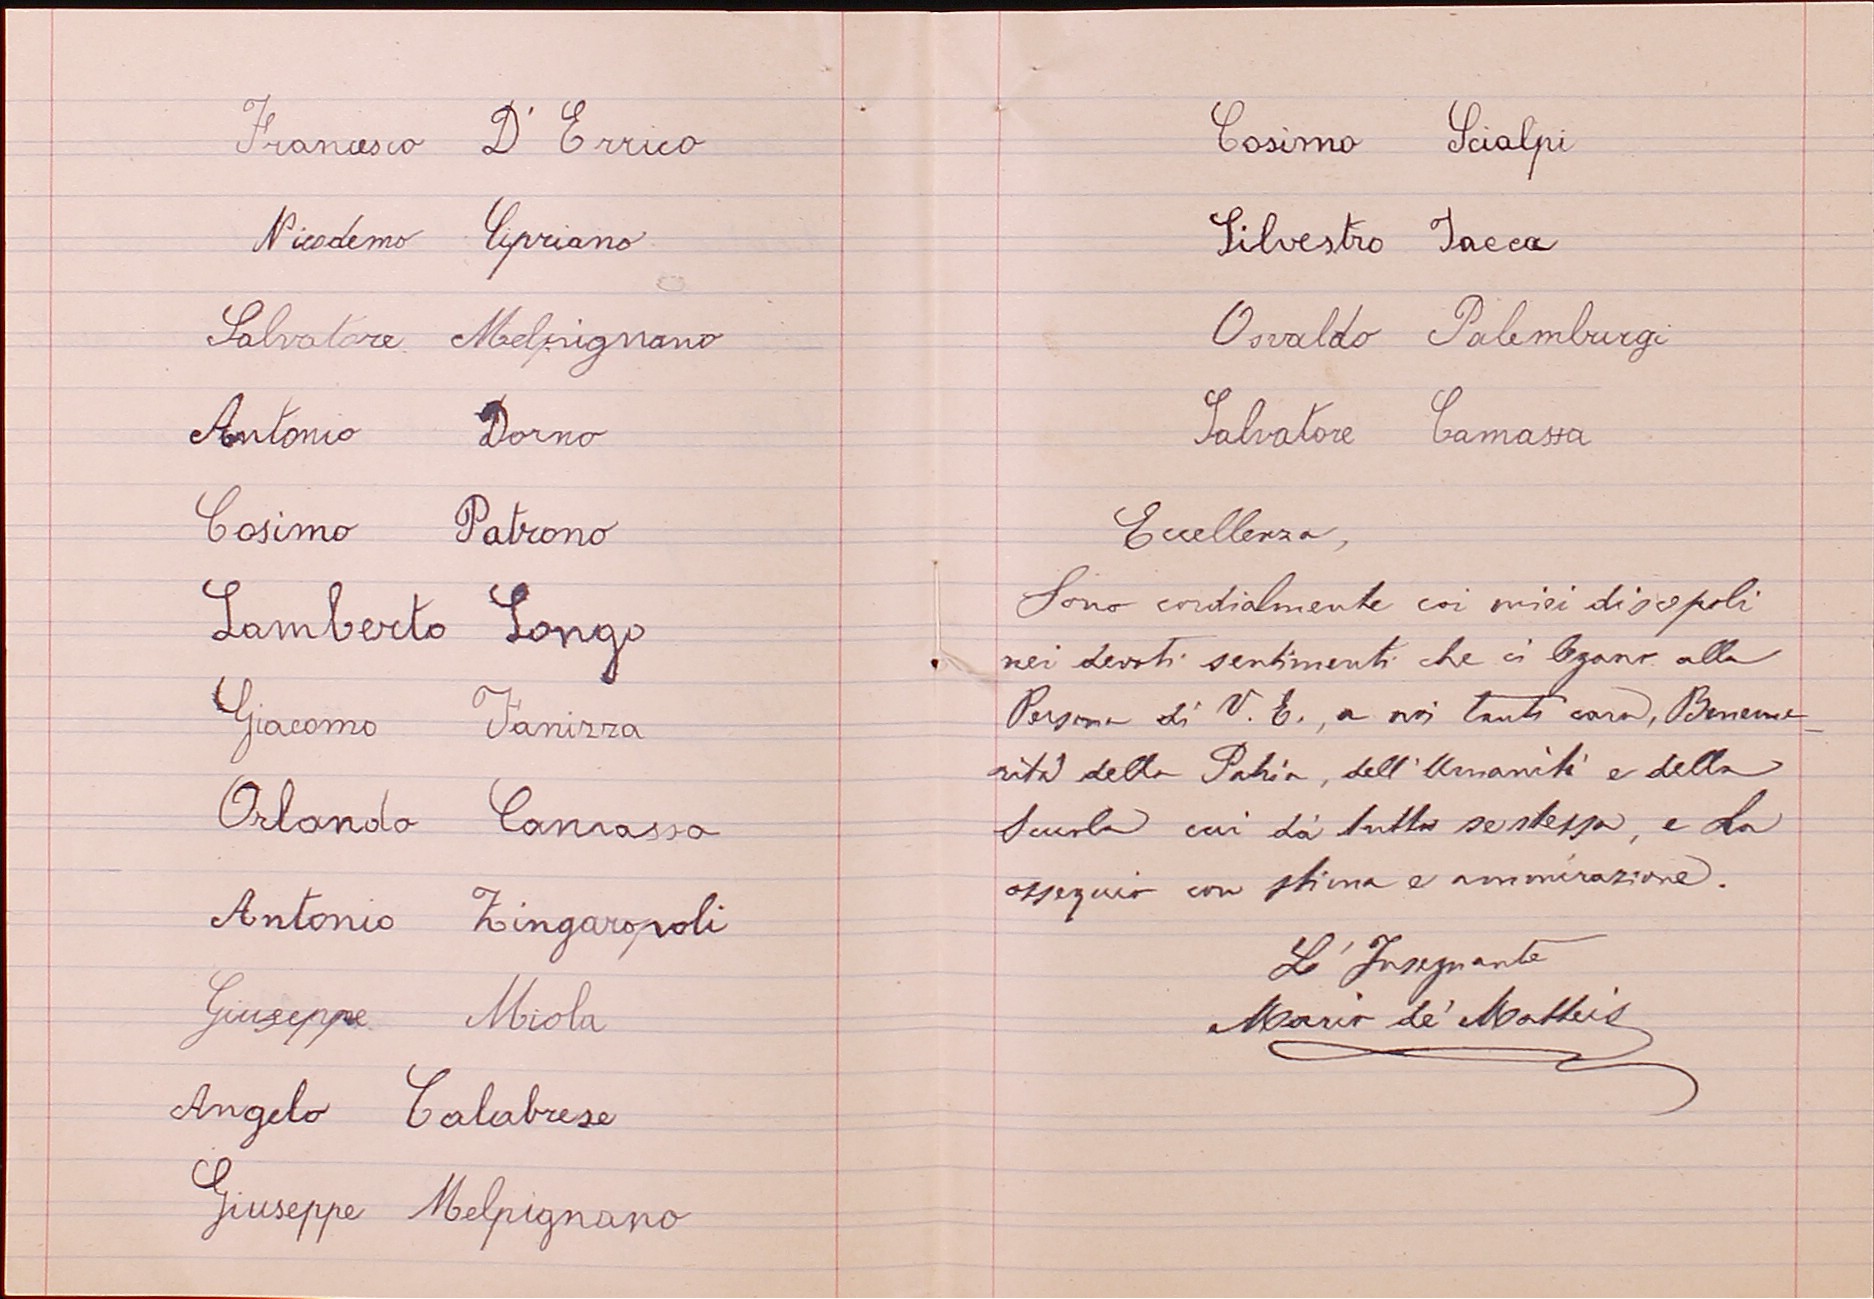 Francesco D'Errico
Nicodemo Cipriano
Salvatore Melpignano
Antonio Dorno
Cosimo Patrono
Lamberto Longo
Giacomo Fanizza
Orlando Camassa
Antonio Zingaropoli
Giuseppe Miola
Angelo Calabrese
Giuseppe Melpignano
Cosimo Scialpi
Silvestro Iacca
Osvaldo Palemburgi
Salvatore Camassa
Eccellenza,
Sono cordialmente coi miei discepoli
nei devoti sentimenti che ci legano alla
Persona di V. E., a noi tanto cara, Beneme-
rita della Patria, dell'Umanità e della
Scuola cui dà tutta se stessa, e La
ossequio con stima e ammirazione.
L'Insegnante
Mario de' Matteis